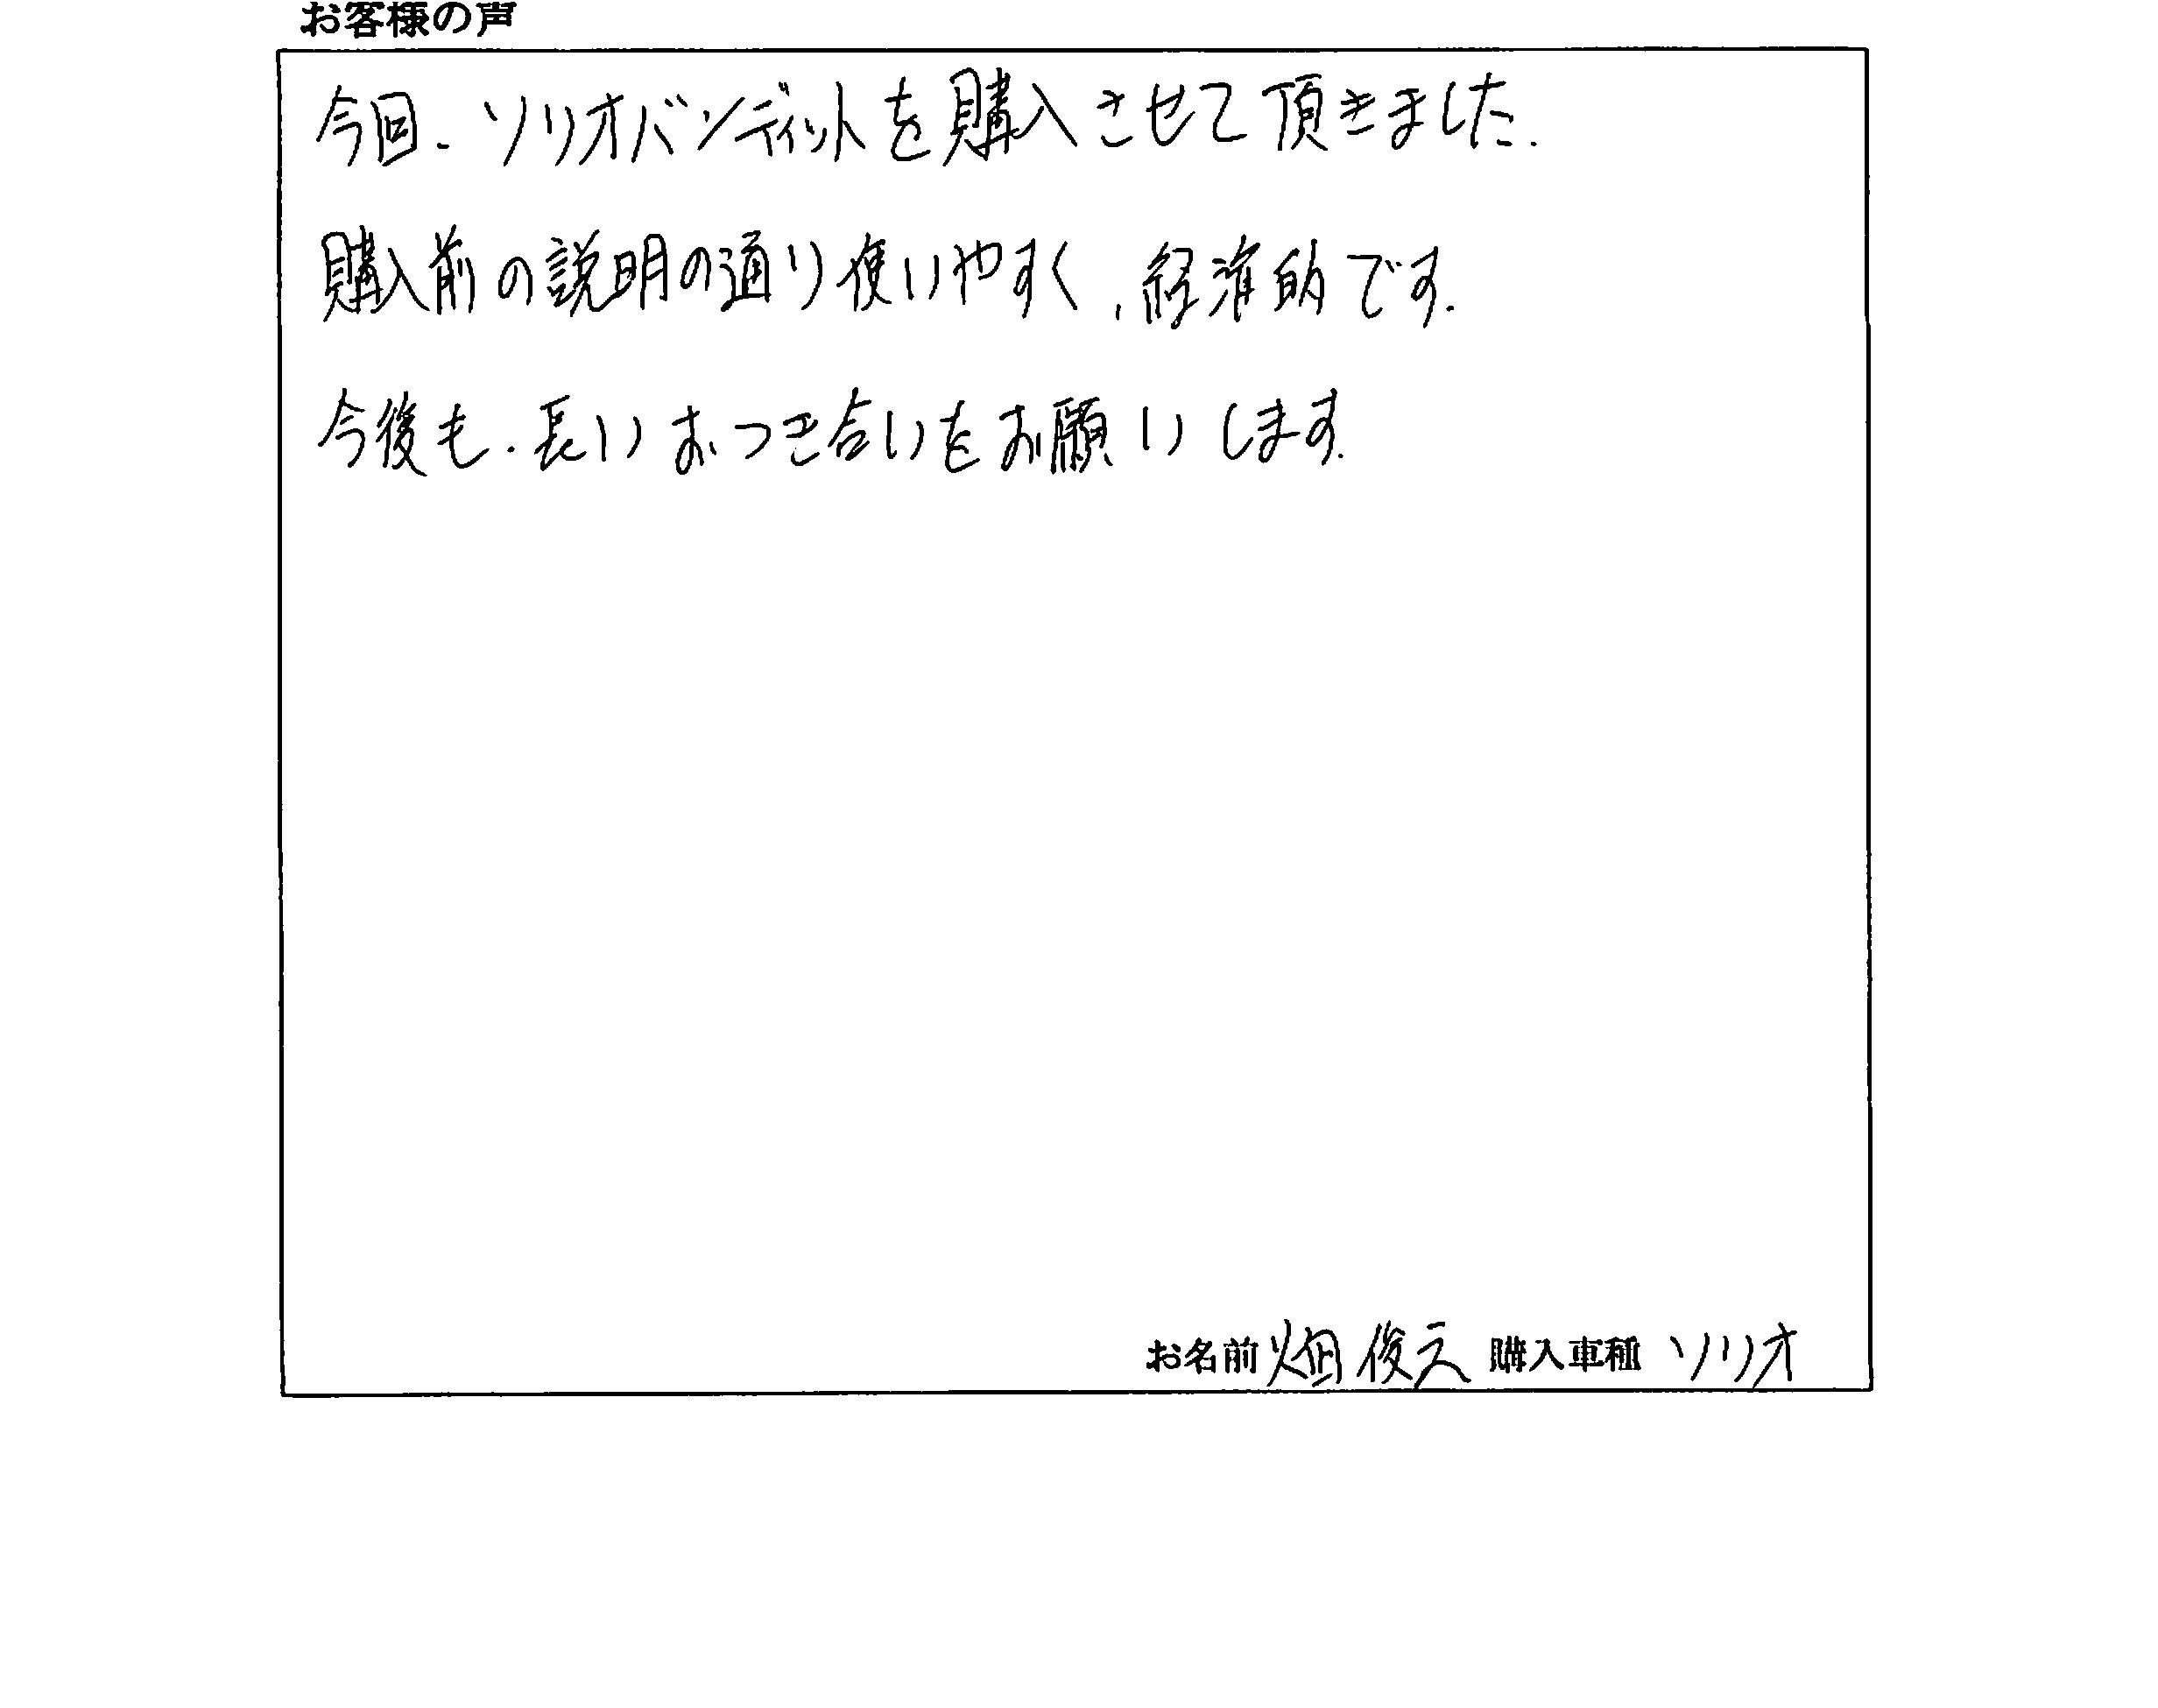 お客様の声
今回、ソリオバンディットを購入させて頂きました。
購入前の説明の通り使いやすく、経済的です。
今後も、長いおつき合いをお願いします。
お名前 畑 俊之 購入車種 ソリオ